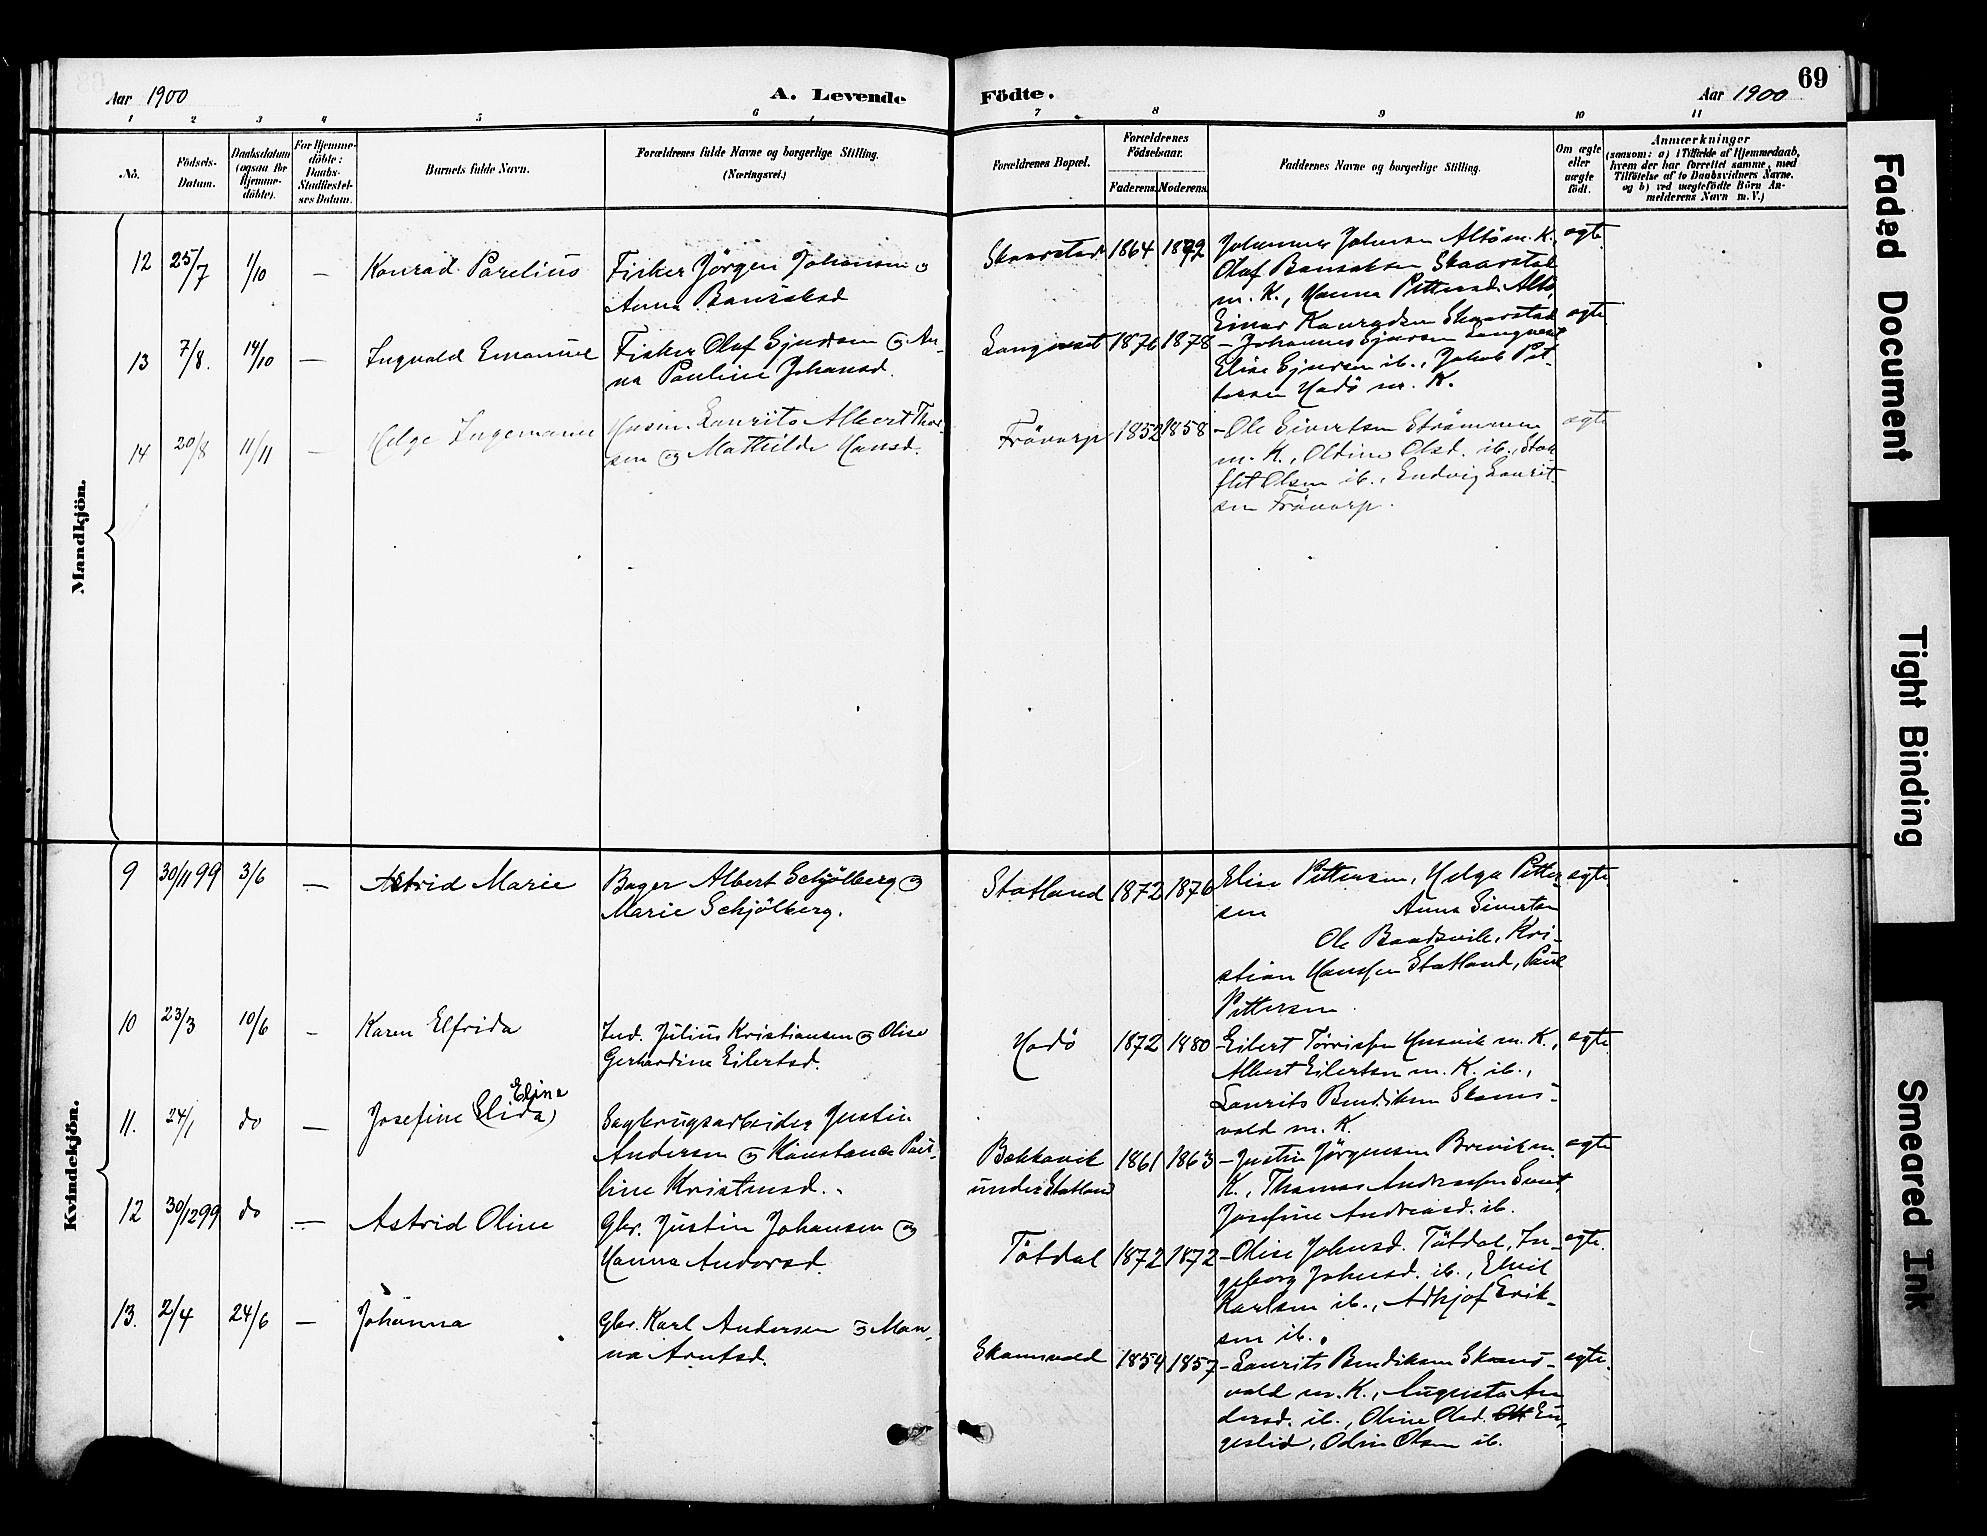 69
Aar 1900
A. Levende
Födte.
Aar 1900
1 2 3 4 5 6 7 8 9 10 11
No.
Födsels-
Datum.
Daabsdatum
(ogsaa for
Hjemme-
döbte).
For Hjemme-
döbte:
Daabs-
Stadfæstel-
ses Datum.
Barnets fulde Navn.
Forældrenes fulde Navne og borgerlige Stilling.
(Næringsvei.)
Forældrenes Bopæl.
Forældrenes
Födselsaar.
Faderens. Moderens.
Faddernes Navne og borgerlige Stilling.
Om ægte
eller
uægte
födt.
Anmærkninger
(saasom: a) i Tilfælde af Hjemmedaab,
hvem der har forrettet samme, med
Tilföielse af to Daabsvidners Navne.
og b) ved uægtefödte Börn An-
melderens Navn m. V.)
Mandkjön.
12 25/7 1/10 — Konrad Parelius
Fisker Jörgen Johansen og
Anna
Skaarstad 1864 1872
Johannes Johnsen Altö m. K.
Olaf Skaarstad
m. K., Hanna Pettersd. Altö,
Einar Konradsen Skaarstad
ægte
13 7/8. 14/10 — Ingvald Emanuel
Fisker Olaf Ejnarsen og An-
na Pauline Johansd.
Langnæset 1876 1878
– Johannes Ejnarsen Langnæset
Elise Ejnarsen ib., Jakob Pet-
tersen Hadö m. K.
ægte
14 20/8 11/11 — Helge Ingemann
Husm. Laurits Albert Thor-
sen og Mathilde Hansd.
Frövarp 1852 1858
– Ole Sivertsen Strömmen
m. K., Oldine Olsd. ib.,
Olsen ib., Ludvig Laurit-
sen Frövarp.
ægte
Kvindekjön.
9 30/11 99 3/6 — Astrid Marie
Bager Albert Schjölberg og
Marie Schjölberg.
Statland 1872 1876
Elise Pettersen, Helga Petter-
sen Anna Sivertsen
Ole Baadsvik, Kri-
stian Hansen Statland, Paul
Pettersen.
ægte
10 23/3 10/6 — Karen Elfrida
Ind. Julius Kristiansen og Olise
Gerhardine Eilertsd.
Hadö 1872 1880
– Eilert Husvik m. K.,
Albert Eilertsen m. K. ib.,
Laurits Bendiksen Skams-
vold m. K.
ægte
11. 24/1 do — Josefine (Elida) Eline
Sagbrugsarbeider Justin
Andersen og Konstance Pau-
line Kristensd.
Bekkavik
under Statland
1861 1863
– Justin Jörgensen Brevik m.
K., Thomas Andreassen
Josefine Andreasd. ib.
ægte
12 30/12 99 do — Astrid Oline
Gbr. Justin Johansen og
Hanna Andorsd.
Tötdal 1872 1872
– Olise Johnsd. Tötdal, In-
geborg Johnsd. ib.,
Karlsen ib., Erik-
sen ib.
ægte.
13. 2/4 24/6 — Johanna
Gbr. Karl Andersen og Han-
na Arntsd.
Skamsvold 1854 1857
– Laurits Bendiksen Skams-
vold m. K., Augusta An-
dersd. ib., Oline Olsd. En-
geslid, Odin Olsen ib.
ægte.
Faded Document
Tight Binding
Smeared Ink